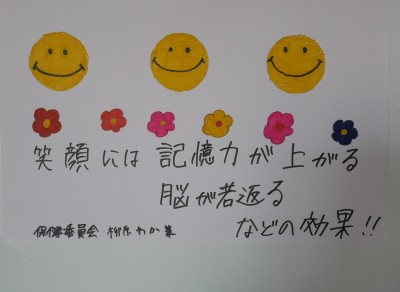 笑顔には 記憶力が 上がる
脳が若返る
などの効果!!
保健委員会 柳原 わか葉